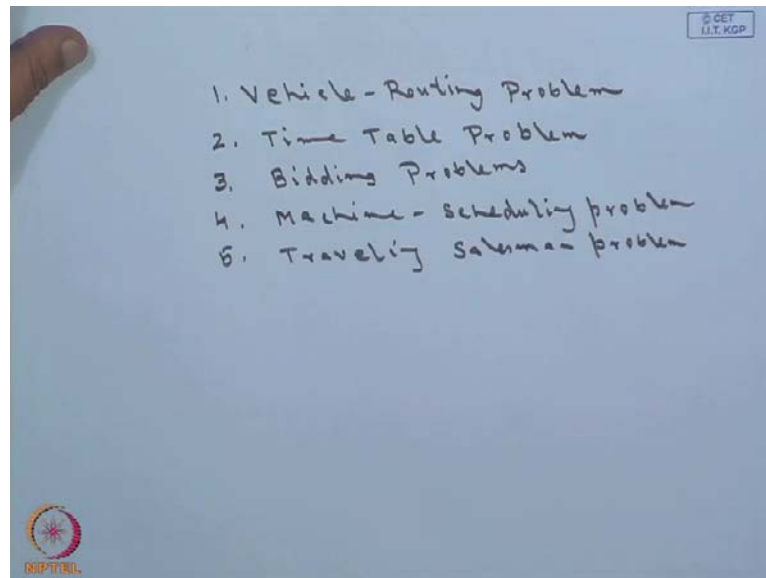 © CET
I.I.T. KGP
1. Vehicle - Routing Problem
2. Time Table Problem
3. Bidding Problems
4. Machine - Scheduling problem
5. Traveling Salesman problem
NPTEL